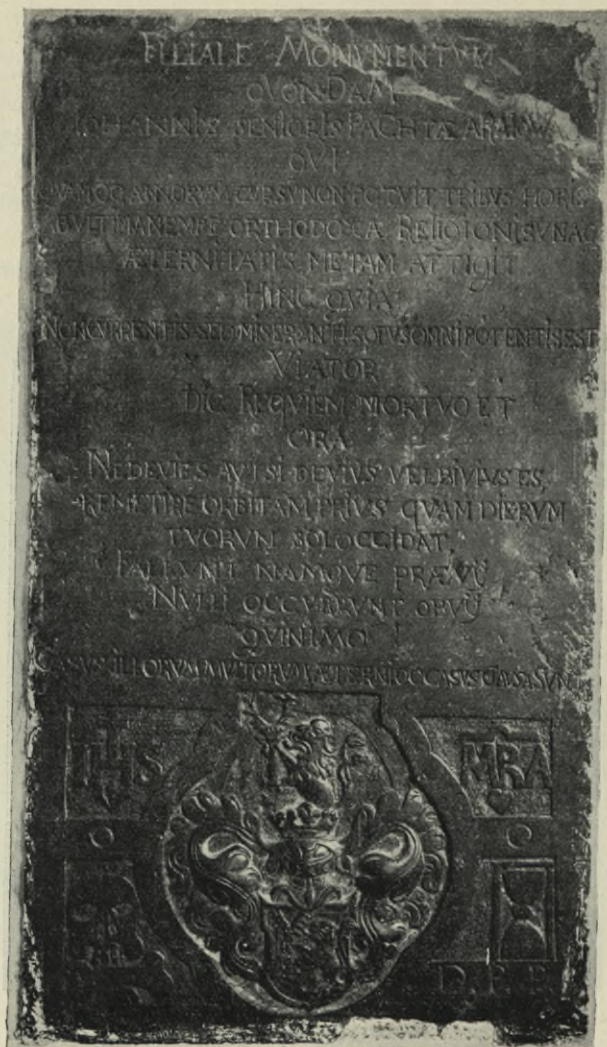 FILIALE MONVMENTVM
QVONDAM
IOHANNIS SENIORIS PACHTÆ A RAIOWA
QVI
ANNORUM CURSU NON POTVIT TRIBUS HORIS
ORTHODOXA RELIGIONIS VNA
ÆTERNITATIS METAM ATTIGIT
HINC QVIA
NON CURRENTIS SED MISERANTIS OMNIPOTENTIS EST
VIATOR
DIC REQVIEM MORTVO ET
ORA
NE DEVIES AVT SI DEVIUS VEL BIVIUS ES,
REMETIRE ORBITAM PRIUS QVAM DIERVM
TVORVM SOL OCCIDAT,
FALLVNT NAMQVE PRÆVIJ
NVLLI OCCVRRVNT OBVIJ
QVINIMO
CASUS ILLORUM MULTORUM ÆTERNI OCCASUS CAUSA SUNT
IHS
MRA